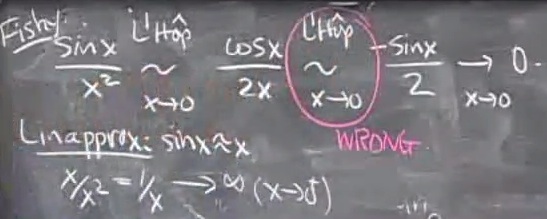 Fishy:
sin x / x² ~ L'Hôp x→0 cos x / 2x ~ L'Hôp x→0 -sin x / 2 → 0. x→0
WRONG.
Lin approx: sin x ≈ x
x/x² = 1/x → ∞ (x→0⁺)